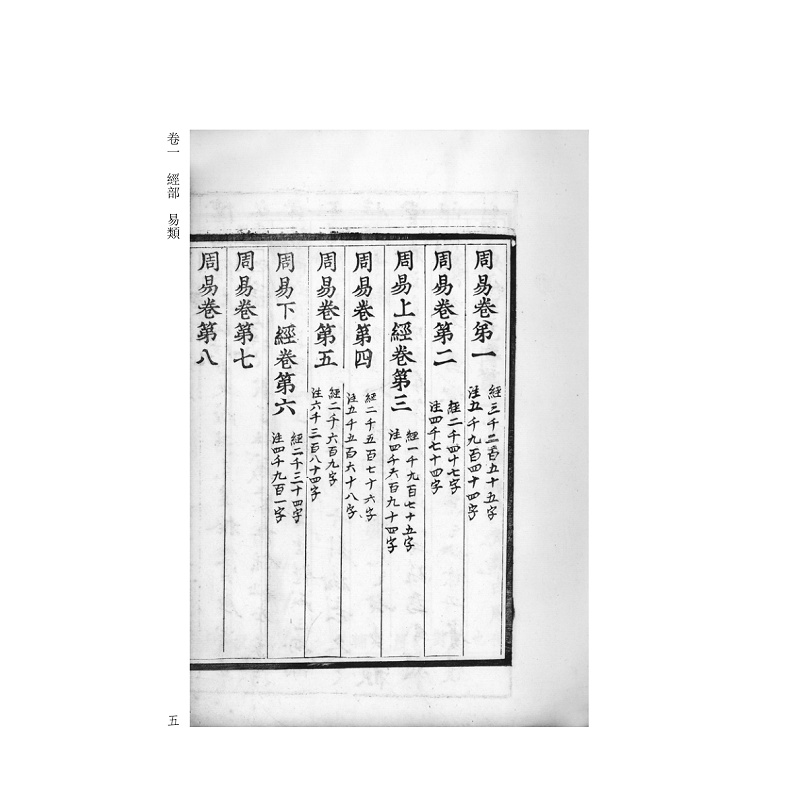 周易卷第一
經三千二百五十五字
注五千九百四十四字
周易卷第二
經二千四十七字
注四千七十四字
周易上經卷第三
經一千九百七十五字
注四千六百九十四字
周易卷第四
經二千五百七十六字
注五千五百六十八字
周易卷第五
經二千六百九字
注六千三百八十四字
周易下經卷第六
經二千三十四字
注四千九百一字
周易卷第七
周易卷第八
卷一 經部 易類
五